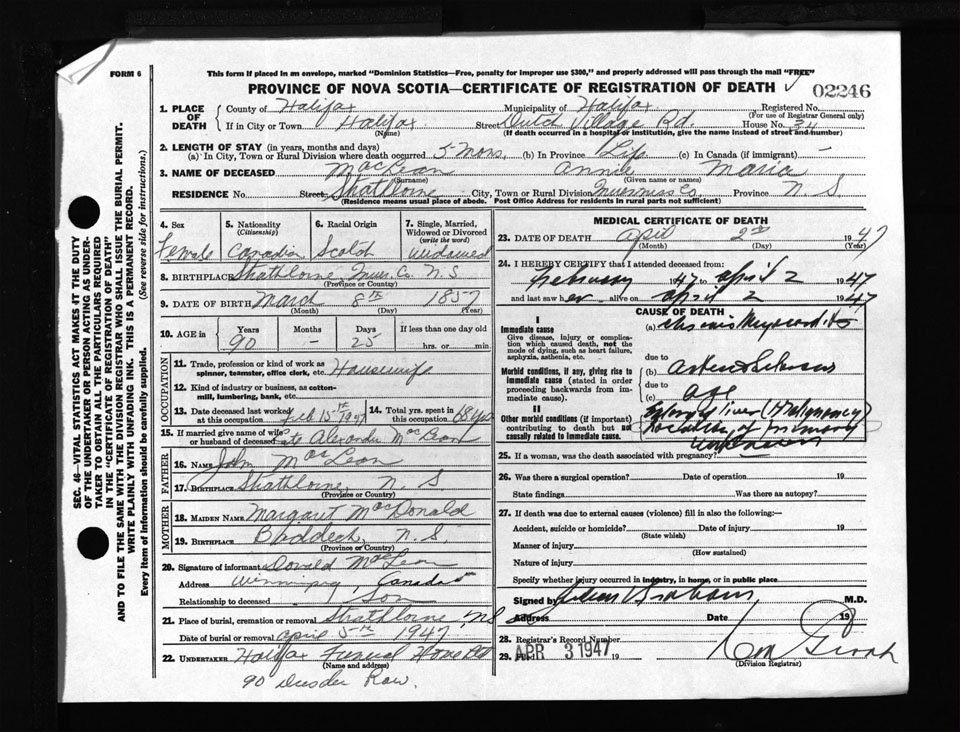 FORM 6
This form if placed in an envelope, marked "Dominion Statistics—Free, penalty for improper use $300," and properly addressed will pass through the mail "FREE"
PROVINCE OF NOVA SCOTIA—CERTIFICATE OF REGISTRATION OF DEATH
02246
1. PLACE OF DEATH
County of Halifax Municipality of Halifax Registered No.
(For use of Registrar General only)
If in City or Town Halifax Street Dutch Village Rd. House No. 34
(Name) (If death occurred in a hospital or institution, give the name instead of street and number)
2. LENGTH OF STAY (in years, months and days)
(a) In City, Town or Rural Division where death occurred 5 Mons. (b) In Province Life (c) In Canada (if immigrant) —
3. NAME OF DECEASED MacLean Annie Maria
(Surname) (Given name or names)
RESIDENCE No. Street Strathlorne City, Town or Rural Division Inverness Co. Province N. S.
(Residence means usual place of abode. Post Office Address for residents in rural parts not sufficient)
4. Sex Female
5. Nationality (Citizenship) Canadian
6. Racial Origin Scotch
7. Single, Married, Widowed or Divorced (write the word) Widowed
8. BIRTHPLACE Strathlorne Inver. Co. N. S
(Province or Country)
9. DATE OF BIRTH March 8th 1857
(Month) (Day) (Year)
10. AGE in Years 90 Months — Days 25 If less than one day old hrs. or min
OCCUPATION
11. Trade, profession or kind of work as spinner, teamster, office clerk, etc. Housewife
12. Kind of industry or business, as cotton-mill, lumbering, bank, etc.
13. Date deceased last worked at this occupation Feb 15th 1947
14. Total yrs. spent in this occupation 68 yrs
15. If married give name of wife or husband of deceased Alexander MacLean
FATHER
16. NAME John MacLean
17. BIRTHPLACE Strathlorne, N. S
(Province or Country)
MOTHER
18. MAIDEN NAME Margaret MacDonald
19. BIRTHPLACE Baddeck, N. S.
(Province or Country)
20. Signature of informant Donald MacLean
Address Winnipeg, Canada
Relationship to deceased Son
21. Place of burial, cremation or removal Strathlorne, NS
Date of burial or removal April 5th 1947
22. UNDERTAKER Halifax Funeral Home Ltd
(Name and address)
90 Dresden Row.
MEDICAL CERTIFICATE OF DEATH
23. DATE OF DEATH April 2nd 1947
(Month) (Day) (Year)
24. I HEREBY CERTIFY that I attended deceased from:
February 1947 to April 2 1947
and last saw her alive on April 2 1947
CAUSE OF DEATH
I
Immediate cause
Give disease, injury or complication which caused death, not the mode of dying, such as heart failure, asphyxia, asthenia, etc.
(a) Chronic Myocarditis
due to
Morbid conditions, if any, giving rise to immediate cause (stated in order proceeding backwards from immediate cause).
(b) Arteriosclerosis
due to
(c) age
II
Other morbid conditions (if important) contributing to death but not causally related to immediate cause.
liver (Malignancy)
Locality of primary
unknown
25. If a woman, was the death associated with pregnancy?
26. Was there a surgical operation? Date of operation 19
State findings Was there an autopsy?
27. If death was due to external causes (violence) fill in also the following:—
Accident, suicide or homicide? Date of injury 19
(State which)
Manner of injury
(How sustained)
Nature of injury
Specify whether injury occurred in industry, in home, or in public place
Signed by Graham M.D.
Address Date 19
28. Registrar's Record Number
29. APR 3 1947 19
(Division Registrar)
SEC. 46—VITAL STATISTICS ACT MAKES IT THE DUTY
OF THE UNDERTAKER OR PERSON ACTING AS UNDERTAKER TO OBTAIN ALL THE PARTICULARS REQUIRED
IN THE "CERTIFICATE OF REGISTRATION OF DEATH"
AND TO FILE THE SAME WITH THE DIVISION REGISTRAR WHO SHALL ISSUE THE BURIAL PERMIT.
WRITE PLAINLY WITH UNFADING INK. THIS IS A PERMANENT RECORD.
Every item of information should be carefully supplied. (See reverse side for instructions.)